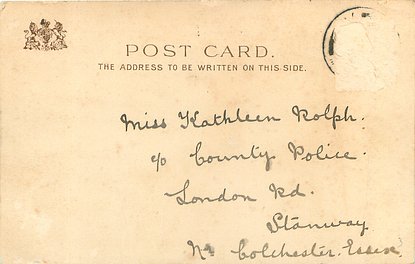 POST CARD.
THE ADDRESS TO BE WRITTEN ON THIS SIDE.
Miss Kathleen Rolph.
c/o County Police.
London Rd.
Stanway
Nr Colchester. Essex.